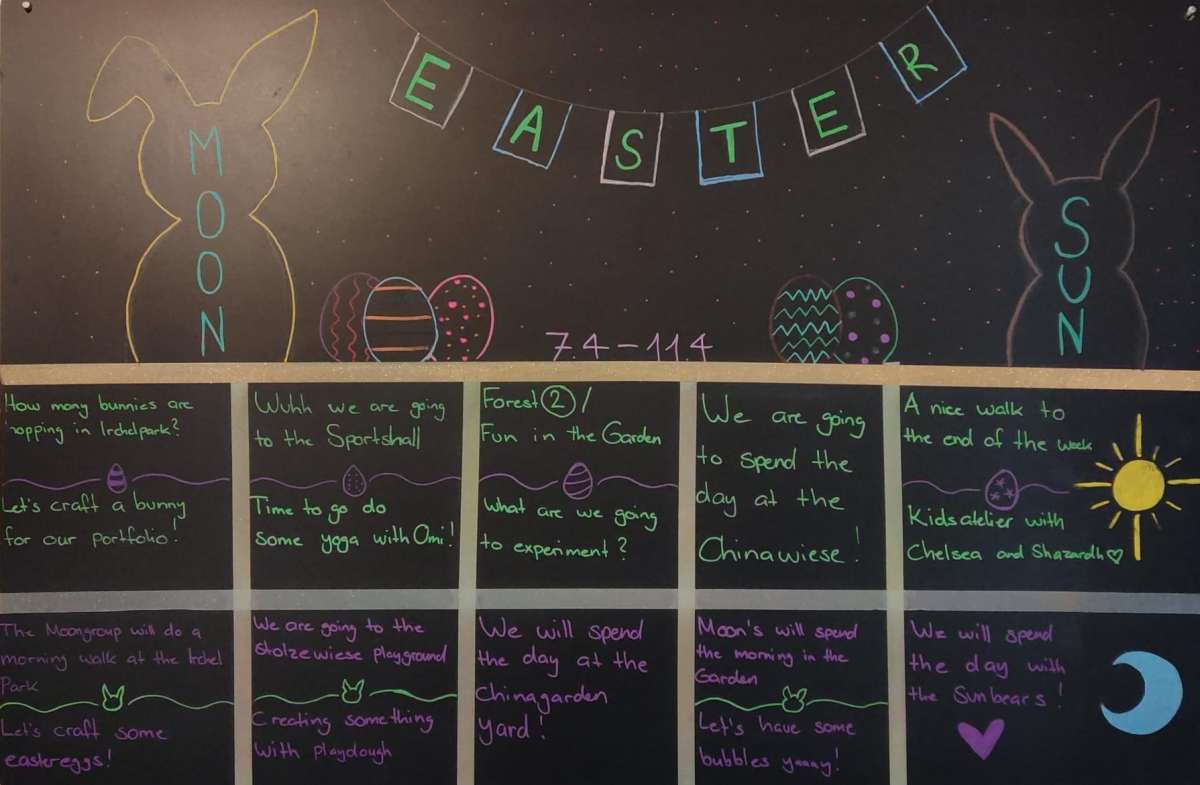 EASTER
MOON
SUN
7.4 – 11.4
How many bunnies are
hopping in Irchelpark?
Let's craft a bunny
for our portfolio!
Wuhh we are going
to the Sportshall
Time to go do
some yoga with Omi!
Forest ② /
Fun in the Garden
What are we going
to experiment?
We are going
to spend the
day at the
Chinawiese!
A nice walk to
the end of the week
Kidsatelier with
Chelsea and Shazardh♡
The Moongroup will do a
morning walk at the Irchel
Park
Let's craft some
eastereggs!
We are going to the
Stolzewiese playground
Creating something
with playdough
We will spend
the day at the
Chinagarden
Yard!
Moon's will spend
the morning in the
Garden
Let's have some
bubbles yaaay!
We will spend
the day with
the Sunbears!